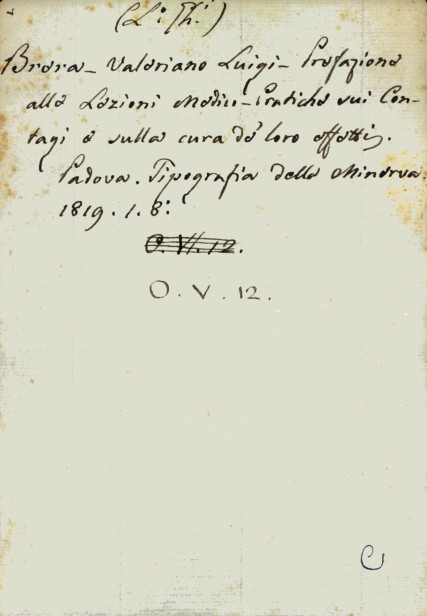 (L: Ph:)
Brera - Valeriano Luigi - Prefazione
alle Lezioni Medico-Pratiche sui Con-
tagi e sulla cura de' loro effetti.
Padova. Tipografia della Minerva.
1819. 1. 8:
O. VI. 12.
O. V. 12.
C